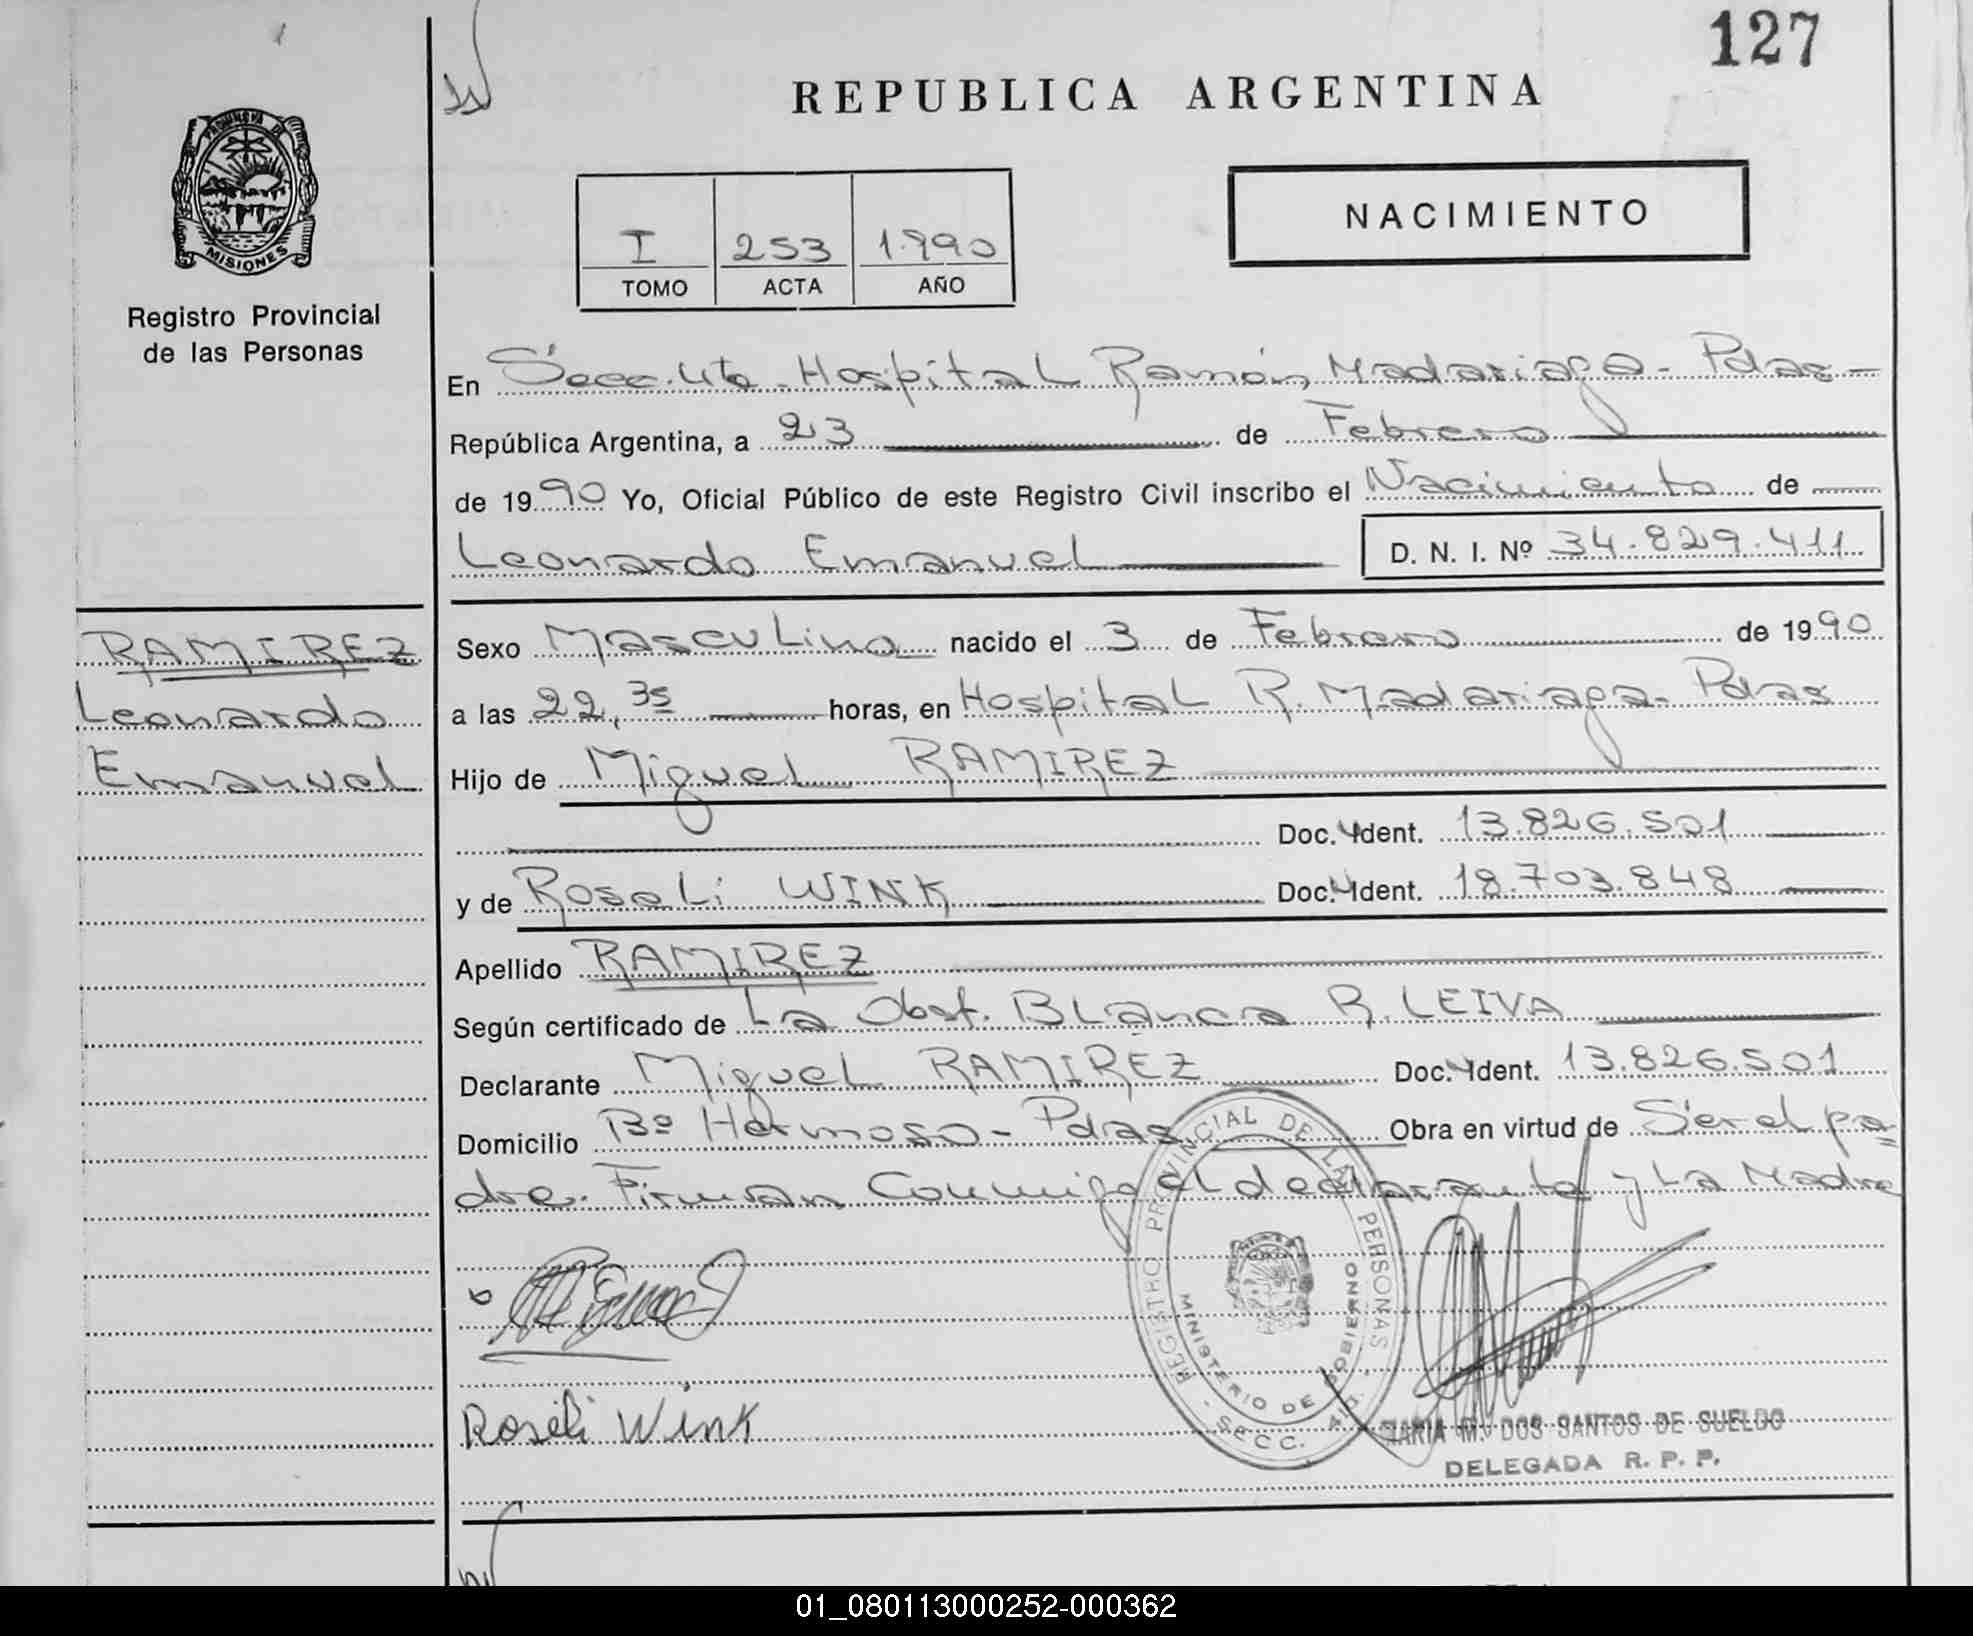 127
REPUBLICA ARGENTINA
PROVINCIA DE
MISIONES
Registro Provincial
de las Personas
I 253 1.990
TOMO ACTA AÑO
NACIMIENTO
En Secc. 4ta. Hospital Ramón Madariaga - Pdas -
República Argentina, a 23 de Febrero
de 1990 Yo, Oficial Público de este Registro Civil inscribo el Nacimiento de
Leonardo Emanuel D. N. I. Nº 34.829.411
RAMIREZ
Leonardo
Emanuel
Sexo Masculino nacido el 3 de Febrero de 1990
a las 22,35 horas, en Hospital R. Madariaga - Pdas
Hijo de Miguel RAMIREZ
Doc. Ident. 13.826.501
y de Roseli WINK Doc. Ident. 18.703.848
Apellido RAMIREZ
Según certificado de La Obst. Blanca R. LEIVA
Declarante Miguel RAMIREZ Doc. Ident. 13.826.501
Domicilio Bº Hermoso - Pdas Obra en virtud de Ser el pa=
dre. Firman Conmigo el declarante y La Madre
REGISTRO PROVINCIAL DE LAS PERSONAS
MINISTERIO DE GOBIERNO
SECC. 4a.
Roseli Wink
MARIA M. DOS SANTOS DE SUELDO
DELEGADA R. P. P.
01_080113000252-000362